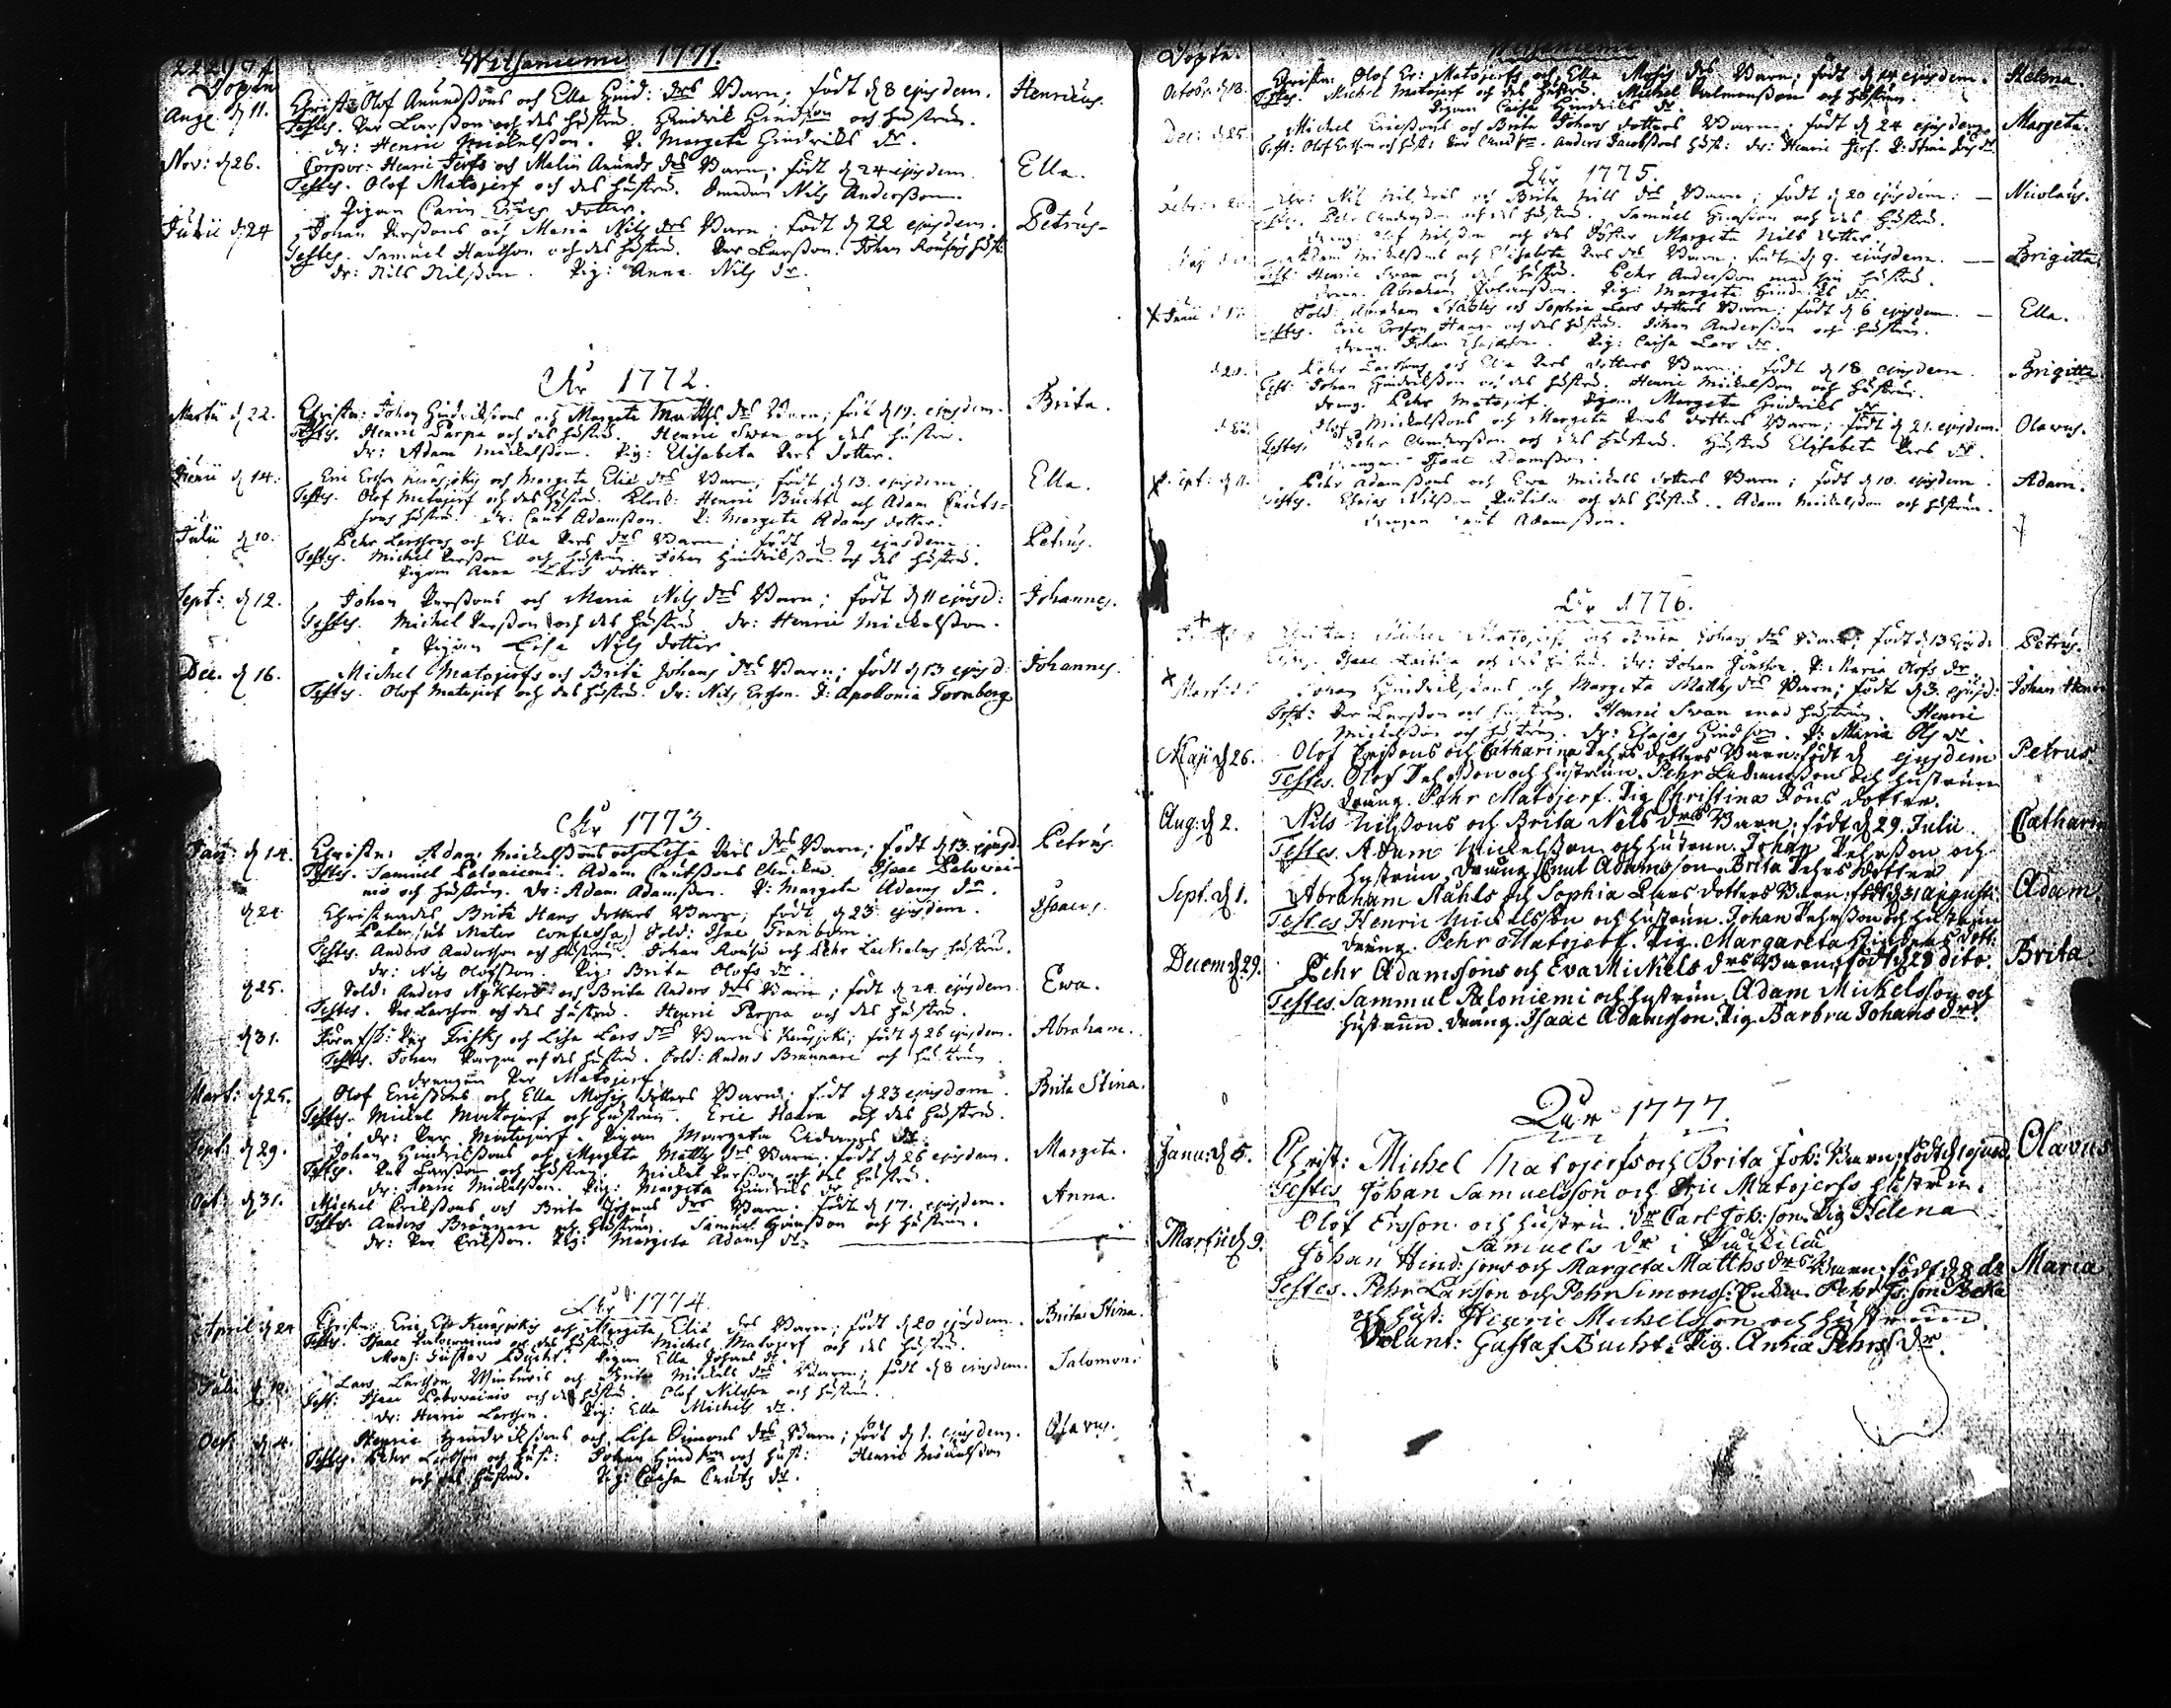 Witsaniemi 1771.
Döpte
Aug. d 11. Christn: Olof Anundssons och Ella Hind: drs Barn; född d 8 ejusdem. Henricus.
Testes. Per Larsson och des hustru. Hindrik Hindson och hustrun.
dr: Henric Mickelsson. P. Margeta Hindriks dr.
Nov: d 26. Corpor: Henric Jerfs och Malin Anunds drs Barn; född d 24 ejusdem. Ella.
Testes. Olof Matojerf och des hustru. Nils Andersson
Pigan Carin Erics dotter.
Julii d 24 Johan Perssons och Maria Nils drs Barn; född d 22 ejusdem. Petrus.
Testes. Samuel och des hustru. Per Larsson. Johan hust:
dr: Nils Nilsson. Pig: Anna Nils dr.
Åhr 1772.
Martii d 22. Christn: Johan Hindrikssons och Margeta Matths drs Barn; född d 19. ejusdem. Brita.
Testes. Henric Parpa och des hustru. Henric Swan och des hustru.
dr: Adam Mickelsson. Pig: Elisabeta Pers dotter.
Junii d 14. Eric Ersson Keräsjokis och Margeta Eliæ drs Barn; född d 13. ejusdem. Ella.
Testes. Olof Matojerf och des hustru. Henric Bucht och Adam Cnuts-
sons hustru. dr: Cnut Adamsson. P: Margeta Adams dotter.
Julii d 10. Pehr Larssons och Ella Pers drs Barn; född d 9 ejusdem. Petrus.
Testes. Michel Persson och hustrun. Johan Hindriksson och des hustru.
Pigan Anna Lars dotter
Sept: d 12. Johan Perssons och Maria Nils drs Barn; född d 11 ejusd: Johannes.
Testes. Michel Persson och des hustru. dr: Henric Mickelsson.
Pigan Nils dotter
Dec. d 16. Michel Matojerfs och Brita Johans drs Barn; född d 13 ejusd: Johannes.
Testes. Olof Matojerf och des hustru. dr: Nils Ersson. P: Apollonia Tornberg
Åhr 1773.
Jan: d 14. Christn: Adam Mickelssons och Lisa Pers drs Barn; född d 13. ejusd. Petrus.
Testes. Samuel Paloniemi. Adam Cnutssons Isaac
och hustrun. dr: Adam Adamsson. P: Margeta Adams dr.
d 24. Christnades Brita Hans dotters Barn; född d 23 ejusdem. Isaacus.
Pater (ut Mater confessa) Sold: Isac Tranbom.
Testes. Anders Andersson och hustrun. Johan och Pehr hustru.
dr: Nils Olofsson. Pig: Brita Olofs dr.
d 25. Sold: Anders Nykters och Brita Anders drs Barn; född d 24 ejusdem. Ewa.
Testes. Per Larsson och des hustru. Henric Parpa och des hustru.
d 31. Frisks och Lisa Lars drs Barn i Keräsjoki; född d 26 ejusdem. Abraham.
Testes. Johan Parpa och des hustru. Sold: Anders Brännare och hustrun
drengen Per Matojerf.
Mart: d 25. Olof Ericssons och Ella Mosis dotters Barn; född d 23 ejusdem. Brita Stina.
Testes. Mickel Matojerf och hustrun. Eric Haara och des hustru.
dr: Per Matojerf. Pigan Margeta Adams dr.
Sept: d 29. Johan Hindrikssons och Margeta Matths drs Barn; född d 26 ejusdem. Margeta.
Testes. Per Larsson och hustrun. Mickel Persson och des hustru.
dr: Henric Mickelsson. Pig: Margeta Hindriks dr.
Oct: d 31. Michel Erikssons och Brita Johans drs Barn; född d 17. ejusdem. Anna.
Testes. Anders Brännare och hustrun. Samuel och hustrun.
dr: Per Eriksson. Pig: Margeta Adams dr.
Åhr 1774.
April d 24 Christn: Eric Ers: Keräsjokis och Margeta Eliæ drs Barn; född d 20 ejusdem. Brita Stina.
Testes. Isaac och des hustru. Michel Matojerf och des hustru.
Mons: Gustav Bucht. Pigan Ella Johans dr.
Julii d 10. Lars Larsson och Brita Mickels drs Barn; född d 8 ejusdem. Salomon.
Test: Isaac och des hustru. Olof Nilsson och hustrun.
dr: Henric Larsson. Pig: Ella Michels dr.
Oct: d 4. Henric Hindrikssons och Lisa Simons drs Barn; född d 1. ejusdem. Olavus.
Testes. Pehr Larsson och hust: Johan Hindson och hust: Henric Mickelsson
och des hustru. Pig: Caisa Cnuts dr.
Döpte.
Octobr: d 18. Christn: Olof Er: Matojerfs och Ella Mosis drs Barn; född d 14 ejusdem. Helena.
Testes. Michel Matojerf och des hustru. Michel och hustrun.
Pigan Caisa Hindriks dr.
Dec: d 25. Michel Ericssons och Brita Johans dotters Barn; född d 24 ejusdem. Margeta.
Test: Olof Ersson och hust: Anders Jacobssons hust: dr: Henric Jerf.
Åhr 1775.
Febr: Chr: Nils Nilssons och Brita Nils drs Barn; född d 20 ejusdem: Nicolaus.
Testes. Pehr Andersson och des hustru. Samuel och des hustru.
dreng: Olof Nilsson och des syster Margeta Nils dotter.
Maji Adam Mickelssons och Elisabeta Pers drs Barn; född d 9. ejusdem. Brigitta
Test: Henric Swan och des hustru. Pehr Andersson med sin hustru.
dreng. Abraham Johansson. Pig: Margeta Hindriks dr.
X Junii Sold: Abraham Ståhls och Sophia Lars dotters Barn; född d 6 ejusdem. Ella.
Testes. Eric Ersson Haara och des hustru. Johan Andersson och hustrun.
dreng. Johan Pig: Caisa Lars dr.
d 20. Pehr Larssons och Ella Pers dotters Barn; född d 18 ejusdem Brigitta.
Test: Johan Hindriksson och des hustru. Henric Mickelsson och hustrun.
dreng. Pehr Matojerf. Pigan Margeta Hindriks dr.
Olof Mickelssons och Margeta Pers dotters Barn; född d 21. ejusdem. Olavus.
Testes. Pehr Andersson och des hustru. Hustru Elisabeta Pers dr.
drengen Isaac Adamsson.
Sept: d 11. Pehr Adamssons och Ewa Mickels dotters Barn; född d 10. ejusdem. Adam.
Testes. Esaias Nilsson och des hustru. Adam Mickelsson och hustrun.
drengen Cnut Adamsson.
Åhr 1776.
Christn: Michel Matojerfs och Brita Johans drs Barn; född d 13 Ejusd: Petrus.
Testes. Isaac och des hustru. dr: Johan Jönsson. P: Maria Olofs dr.
X Mart: d Johan Hindrikssons och Margeta Matths drs Barn; född d 3. ejusd: Johan Henric
Test: Per Larsson och hustrun. Henric Swan med hustrun. Henric
Mickelsson och hustrun. dr: Esajas Hindson. P: Maria Ols dr.
Maji d 26. Olof Erssons och Catharina Pehrs dotters Barn: född d ejusdem Petrus
Testes. Olof Pehrsson och hustrun. Pehr och hustrun
dräng. Pehr Matojerf. Pig Christina Jöns dotter.
Aug: d 2. Nils Nilssons och Brita Nils drs Barn: född d 29. Julii Catharina
Testes. Adam Mickelsson och hustrun. Johan Pehrsson och
hustrun. dräng Cnut Adamsson. Brita Pehrs dotter
Sept. d 1. Abraham Ståhls och Sophia Lars dotters Barn: född d 31 augusti: Adam.
Testes Henric Mickelsson och hustrun. Johan Pehrsson och hustrun
dräng. Pehr Matojerf. Pig. Margareta Hindriks dott:
Decem d 29. Pehr Adamssons och Eva Mickels drs Barn, född d 28 dito. Brita.
Testes. Sammul Paloniemi och hustrun. Adam Mickelsson och
hustrun. dräng. Isaac Adamsson. Pig Barbra Johans dr.
Åhr 1777.
Janu: d 5. Christ: Michel Matojerfs och Brita Joh: Barn; född d 1 ejusd. Olavus
Testes Johan Samuelsson och Eric Matojerfs hustrun.
Olof Ersson och hustrun. dr Carl Joh: son. Pig Helena
Samuels dr i
Martii d 9. Johan Hind: sons och Margeta Matths drs Barn; född d 8 do Maria
Testes. Pehr Larsson och Pehr Simons: Pehr
och hust: Henric Mickelsson och hustrun
Volunt: Gustaf Bucht. Pig. Anna Pehrs dr.